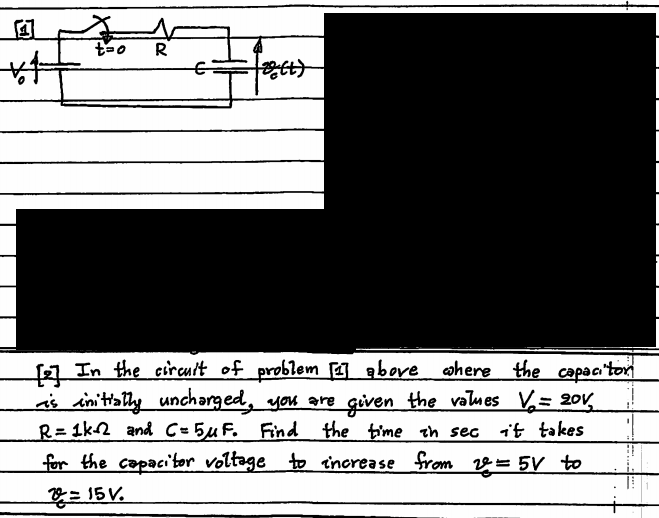 [1]
t=0 R
V₀ C v_c(t)
[2] In the circuit of problem [1] above where the capacitor
is initially uncharged, you are given the values V₀ = 20V,
R = 1kΩ and C = 5μF. Find the time in sec it takes
for the capacitor voltage to increase from v_c = 5V to
v_c = 15V.